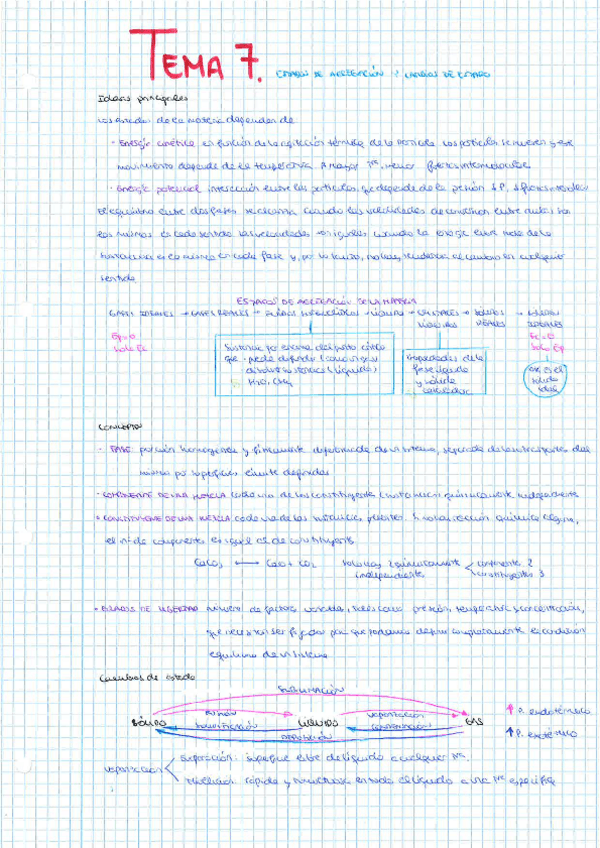 TEMA 7. ESTADOS DE AGREGACIÓN Y CAMBIOS DE ESTADO
Ideas principales
Los estados de la materia dependen de
· Energía cinética en función de la agitación térmica de la partícula. Las partículas se mueven y ese
movimiento depende de la temperatura. A mayor Tª, menor fuerzas intermoleculares
· Energía potencial interacción entre las partículas, que depende de la presión
El equilibrio entre dos fases se alcanza cuando las velocidades de cambio entre ambas son
las mismas en cada sentido. Las velocidades son iguales cuando la energía libre molar de la
sustancia es la misma en cada fase y, por lo tanto, no hay tendencia al cambio en cualquier
sentido
ESTADOS DE AGREGACIÓN DE LA MATERIA
GASES IDEALES → GASES REALES → FLUIDOS SUPERCRÍTICOS → LÍQUIDOS → CRISTALES LÍQUIDOS → SÓLIDOS REALES → SÓLIDOS IDEALES
Ep=0
Solo Ec
Ec=0
Solo Ep
Sustancia por encima del punto crítico
que puede difundir (como un gas)
disolver sustancias (líquido)
H2O, CH4
Propiedades de la
fase líquida
y sólida
sólido
ideal
Conceptos
· FASE porción homogénea y físicamente diferenciada de un sistema, separada de las otras partes del
mismo por superficies límite definidas
· COMPONENTE DE UNA MEZCLA cada uno de los constituyentes químicamente independiente
· CONSTITUYENTE DE UNA MEZCLA cada una de las sustancias presentes. Si no hay reacción química alguna,
el nº de componentes es igual al de constituyentes
CaCO3 ⟷ CaO + CO2 solo hay 2 químicamente independientes componentes 2
constituyentes 3
· GRADOS DE LIBERTAD número de factores variables, tales como presión, temperatura y concentración,
que necesitan ser fijados para que podamos definir completamente la condición
equilibrio de un sistema
Cambios de estado
SUBLIMACIÓN
FUSIÓN VAPORIZACIÓN
SÓLIDO LÍQUIDO GAS
SOLIDIFICACIÓN CONDENSACIÓN
DEPOSICIÓN
↑ P. endotérmico
↑ P. exotérmico
Vaporización
Evaporación: superficie libre del líquido a cualquier Tª.
Ebullición: rápida y tumultuosa en todo el líquido a una Tª específica